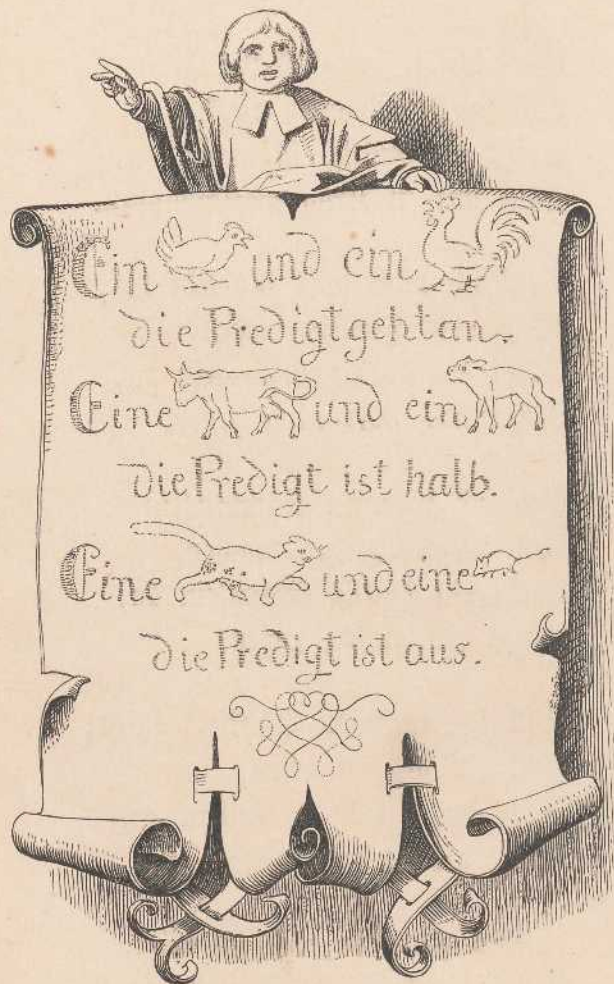 Ein und ein
die Predigt geht an.
Eine und ein
die Predigt ist halb.
Eine und eine
die Predigt ist aus.